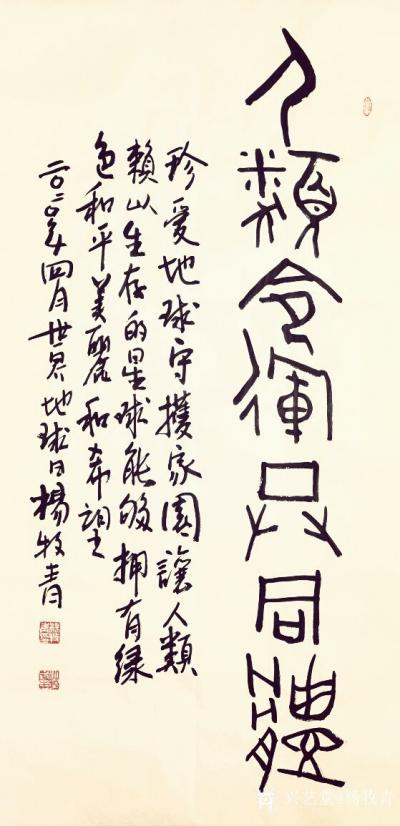 人類命運共同體
珍愛地球守護家園讓人類
賴以生存的星球能够拥有绿
色和平美麗和希望
二〇二〇年四月世界地球日楊牧青
兴艺堂@杨牧青